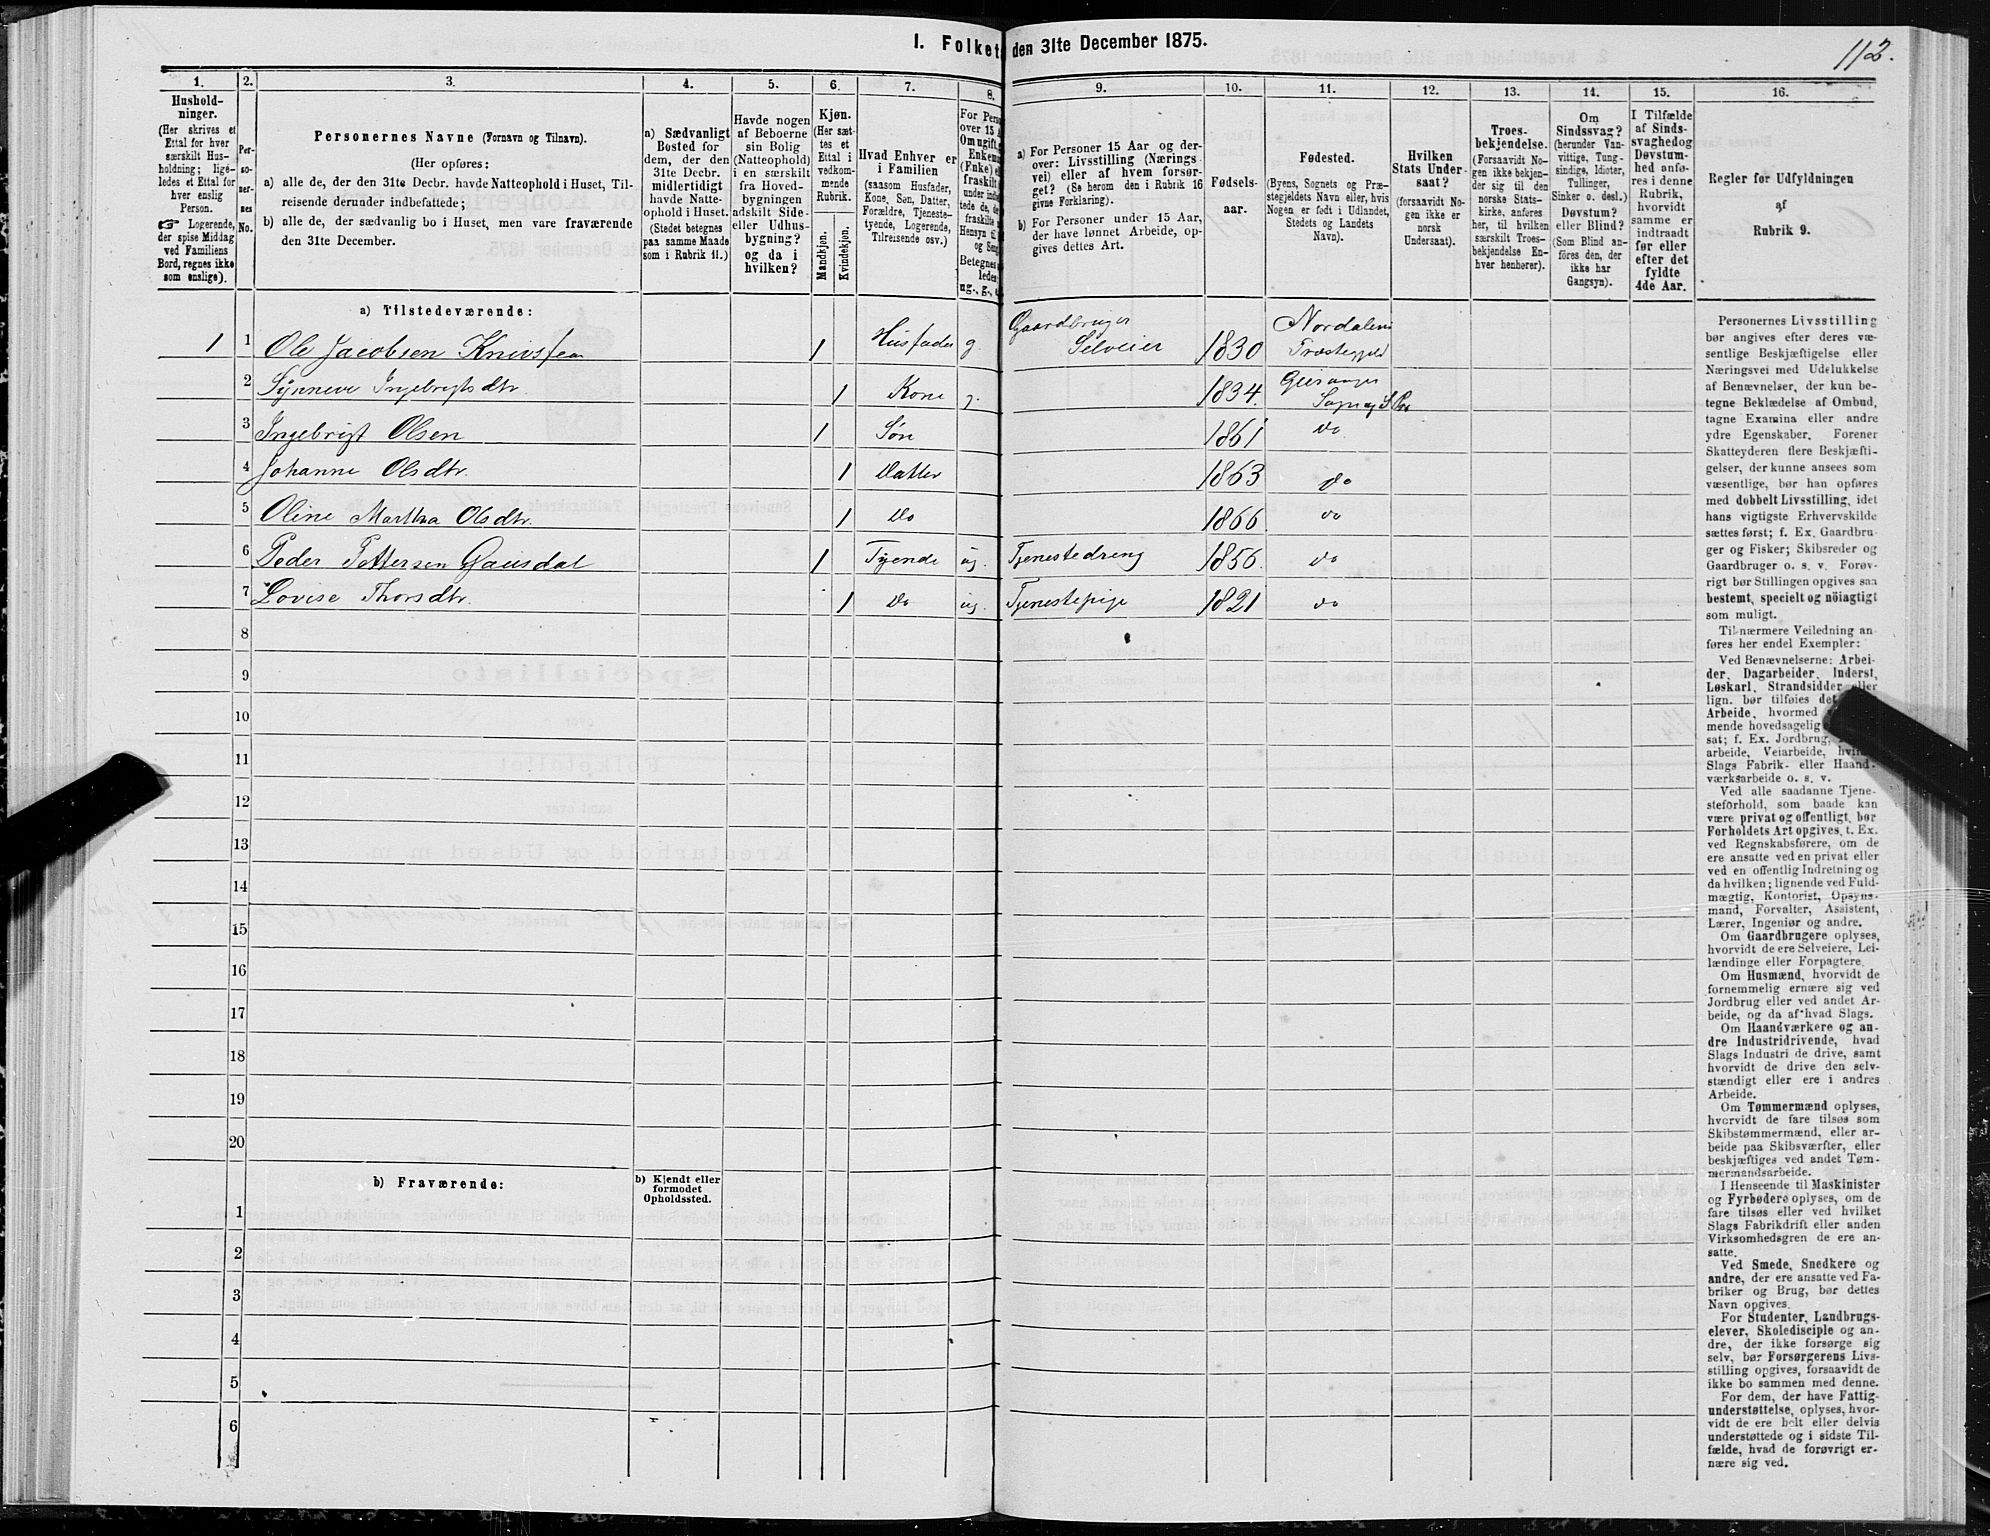 I. Folket den 31te December 1875.
112.
1.
2.
3.
4.
5.
6.
7.
8.
9.
10.
11.
12.
13.
14.
15.
16.
Hushold-
ninger.
(Her skrives et
Ettal for hver
særskilt Hus-
holdning; lige-
ledes et Ettal for
hver enslig
Person.
☞ Logerende,
der spise Middag
ved Familiens
Bord, regnes ikke
som enslige).
Per-
so-
ner-
nes
No.
Personernes Navne (Fornavn og Tilnavn).
(Her opføres:
a) alle de, der den 31te Decbr. havde Natteophold i Huset, Til-
reisende derunder indbefattede;
b) alle de, der sædvanlig bo i Huset, men vare fraværende
den 31te December.
a) Sædvanligt
Bosted for
dem, der den
31te Decbr.
midlertidigt
havde Natte-
ophold i Huset.
(Stedet betegnes
paa samme Maade
som i Rubrik 11.)
Havde nogen
af Beboerne
sin Bolig
(Natteophold)
i en særskilt
fra Hoved-
bygningen
adskilt Side-
eller Udhus-
bygning?
og da i
hvilken?
Kjøn.
(Her sæt-
tes et
Ettal i
vedkom-
mende
Rubrik.
Mandkjøn.
Kvindekjøn.
Hvad Enhver er
i Familien
(saasom Husfader,
Kone, Søn, Datter,
Forældre, Tjeneste-
tyende, Logerende,
Tilreisende osv.)
For Perso
over 15 A
Om ugift,
Enkem
(Enke)
fraskilt
a) For Personer 15 Aar og der-
over: Livsstilling (Nærings-
vei) eller af hvem forsør-
get? (Se herom den i Rubrik 16
givne Forklaring).
b) For Personer under 15 Aar,
der have lønnet Arbeide, op-
gives dettes Art.
Fødsels-
aar.
Fødested.
(Byens, Sognets og Præ-
stegjeldets Navn eller, hvis
Nogen er født i Udlandet,
Stedets og Landets
Navn).
Hvilken
Stats Under-
saat?
(forsaavidt No-
gen ikke er
norsk
Undersaat).
Troes-
bekjendelse.
(Forsaavidt No-
gen ikke bekjen-
der sig til den
norske Stats-
kirke, anføres
her, til hvilken
særskilt Troes-
bekjendelse En-
hver henhører).
Om
Sindssvag?
(herunder Van-
vittige, Tung-
sindige, Idioter,
Tullinger,
Sinker o. desl.)
Døvstum?
eller Blind?
(Som Blind an-
føres den, der
ikke har
Gangsyn).
I Tilfælde
af Sinds-
svaghed og
Døvstum-
hed anfø-
res i denne
Rubrik,
hvorvidt
samme er
indtraadt
før eller
efter det
fyldte
4de Aar.
Regler for Udfyldningen
af
Rubrik 9.
a) Tilstedeværende:
1 1 Ole Jacobsen Knivsfaa 1 Husfader g. Gaardbruger Selveier 1830 Nordalens Præstegjeld
2 Synneve Ingebrigtsdtr. 1 Kone g. 1834. Geiranger
3 Ingebrigt Olsen 1 Søn 1861 do
4 Johanne Olsdtr. 1 Datter 1863 do
5 Oline Martha Olsdtr. 1 Do 1866 do
6 Peder Pettersen Gausdal 1 Tyende ug. Tjenestedreng 1856. do
7 Lovise Thorsdtr. 1 Do ug. Tjenestepige 1821 do
8
9
10
11
12
13
14
15
16
17
18
19
20
b) Fraværende:
b) Kjendt eller
formodet
Opholdssted.
1
2
3
4
5
6
Personernes Livsstilling
bør angives efter deres væ-
sentlige Beskjæftigelse eller
Næringsvei med Udelukkelse
af Benævnelser, der kun be-
tegne Beklædelse af Ombud,
tagne Examina eller andre
ydre Egenskaber. Forener
Skatteyderen flere Beskjæfti-
gelser, der kunne ansees som
væsentlige, bør han opføres
med dobbelt Livsstilling, idet
hans vigtigste Erhvervskilde
sættes først; f. Ex. Gaardbru-
ger og Fisker; Skibsreder og
Gaardbruger o. s. v. Forøv-
rigt bør Stillingen opgives saa
bestemt, specielt og nöiagtigt
som muligt.
Til nærmere Veiledning an-
føres her endel Exempler:
Ved Benævnelserne: Arbei-
der, Dagarbeider, Inderst,
Løskarl, Strandsidder eller
lign. bør tilføies det
Arbeide, hvormed
mende hovedsagelig
sat; f. Ex. Jordbrug,
arbeide, Veiarbeide, hvilket
Slags Fabrik- eller Haand-
værksarbeide o. s. v.
Ved alle saadanne Tjene-
steforhold, som baade kan
være privat og offentligt, bør
Forholdets Art opgives, t. Ex.
ved Regnskabsførere, om de
ere ansatte ved en privat eller
ved en offentlig Indretning og
da hvilken; lignende ved Fuld-
mægtig, Kontorist, Opsyns-
mand, Forvalter, Assistent,
Lærer, Ingeniør og andre.
Om Gaardbrugere oplyses,
hvorvidt de ere Selveiere, Lei-
lændinge eller Forpagtere.
Om Husmænd, hvorvidt de
fornemmelig ernære sig ved
Jordbrug eller ved andet Ar-
beide, og da af hvad Slags.
Om Haandværkere og an-
dre Industridrivende, hvad
Slags Industri de drive, samt
hvorvidt de drive den selv-
stændigt eller ere i andres
Arbeide.
Om Tømmermænd oplyses,
hvorvidt de fare tilsøs som
Skibstømmermænd, eller ar-
beide paa Skibsværfter, eller
beskjæftiges ved andet Tøm-
mermandsarbeide.
I Henseende til Maskinister
og Fyrbødere oplyses, om de
fare tilsøs eller ved hvilket
Slags Fabrikdrift eller anden
Virksomhedsgren de ere an-
satte.
Ved Smede, Snedkere og
andre, der ere ansatte ved Fa-
briker og Brug, bør dettes
Navn opgives.
For Studenter, Landbrugs-
elever, Skoledisciple og an-
dre, der ikke forsørge sig
selv, bør Forsørgerens Livs-
stilling opgives, forsaavidt de
ikke bo sammen med denne.
For dem, der have Fattig-
understøttelse, oplyses, hvor-
vidt de ere helt eller delvis
understøttede og i sidste Til-
fælde, hvad de forøvrigt er-
nære sig ved.